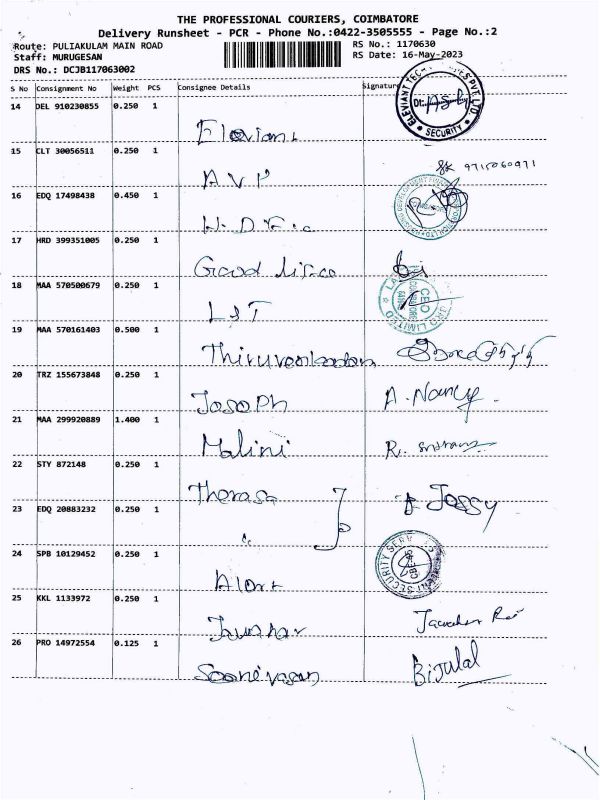 THE PROFESSIONAL COURIERS, COIMBATORE
Delivery Runsheet - PCR - Phone No.:0422-3505555 - Page No.:2
Route: PULIAKULAM MAIN ROAD
RS No.: 1170630
Staff: MURUGESAN
RS Date: 16-May-2023
DRS No.: DCJB117063002
S No Consignment No Weight PCS Consignee Details Signature
14 DEL 910230855 0.250 1
SECURITY
15 CLT 30056511 0.250 1
A V P
16 EDQ 17498438 0.450 1
17 HRD 399351005 0.250 1
18 MAA 570500679 0.250 1
L & T
CEO
19 MAA 570161403 0.500 1
20 TRZ 155673848 0.250 1
Joseph A. Nancy.
21 MAA 299920889 1.400 1
Malini
22 STY 872148 0.250 1
Therasa
23 EDQ 20883232 0.250 1
Jossy
24 SPB 10129452 0.250 1
Alort
25 KKL 1133972 0.250 1
26 PRO 14972554 0.125 1
Bijulal